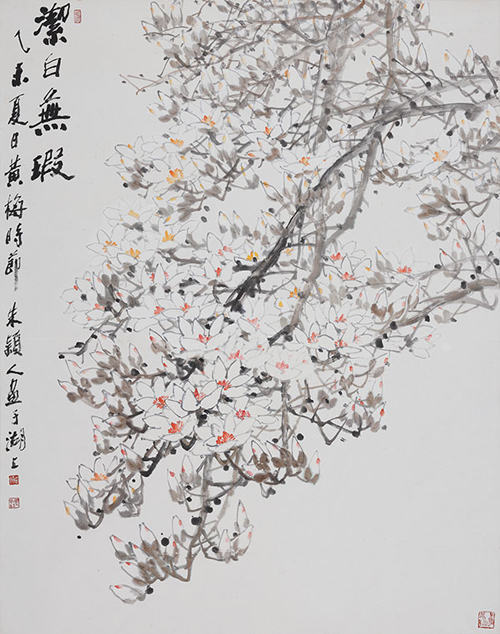 潔白無瑕
乙未夏日黄梅時節 朱穎人畫于湖上